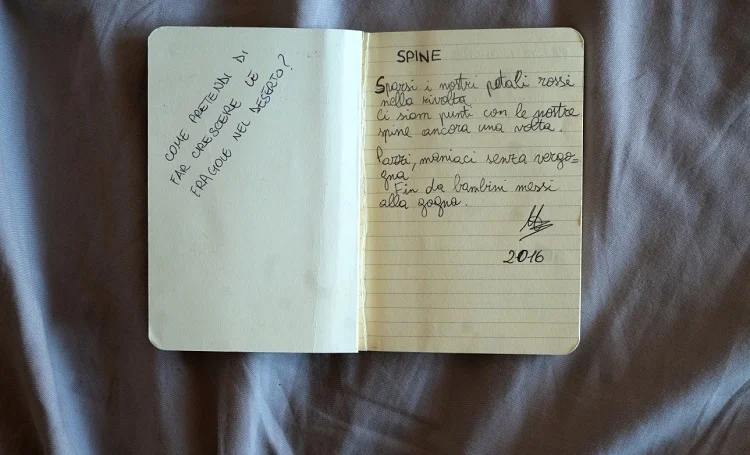 COME PRETENDI DI
FAR CRESCERE LE
FRAGOLE NEL DESERTO?
SPINE
Sparsi i nostri petali rossi
nella rivolta
Ci siam punti con le nostre
spine ancora una volta.
Pazzi, maniaci senza vergo=
gna
Fin da bambini messi
alla gogna.
2016